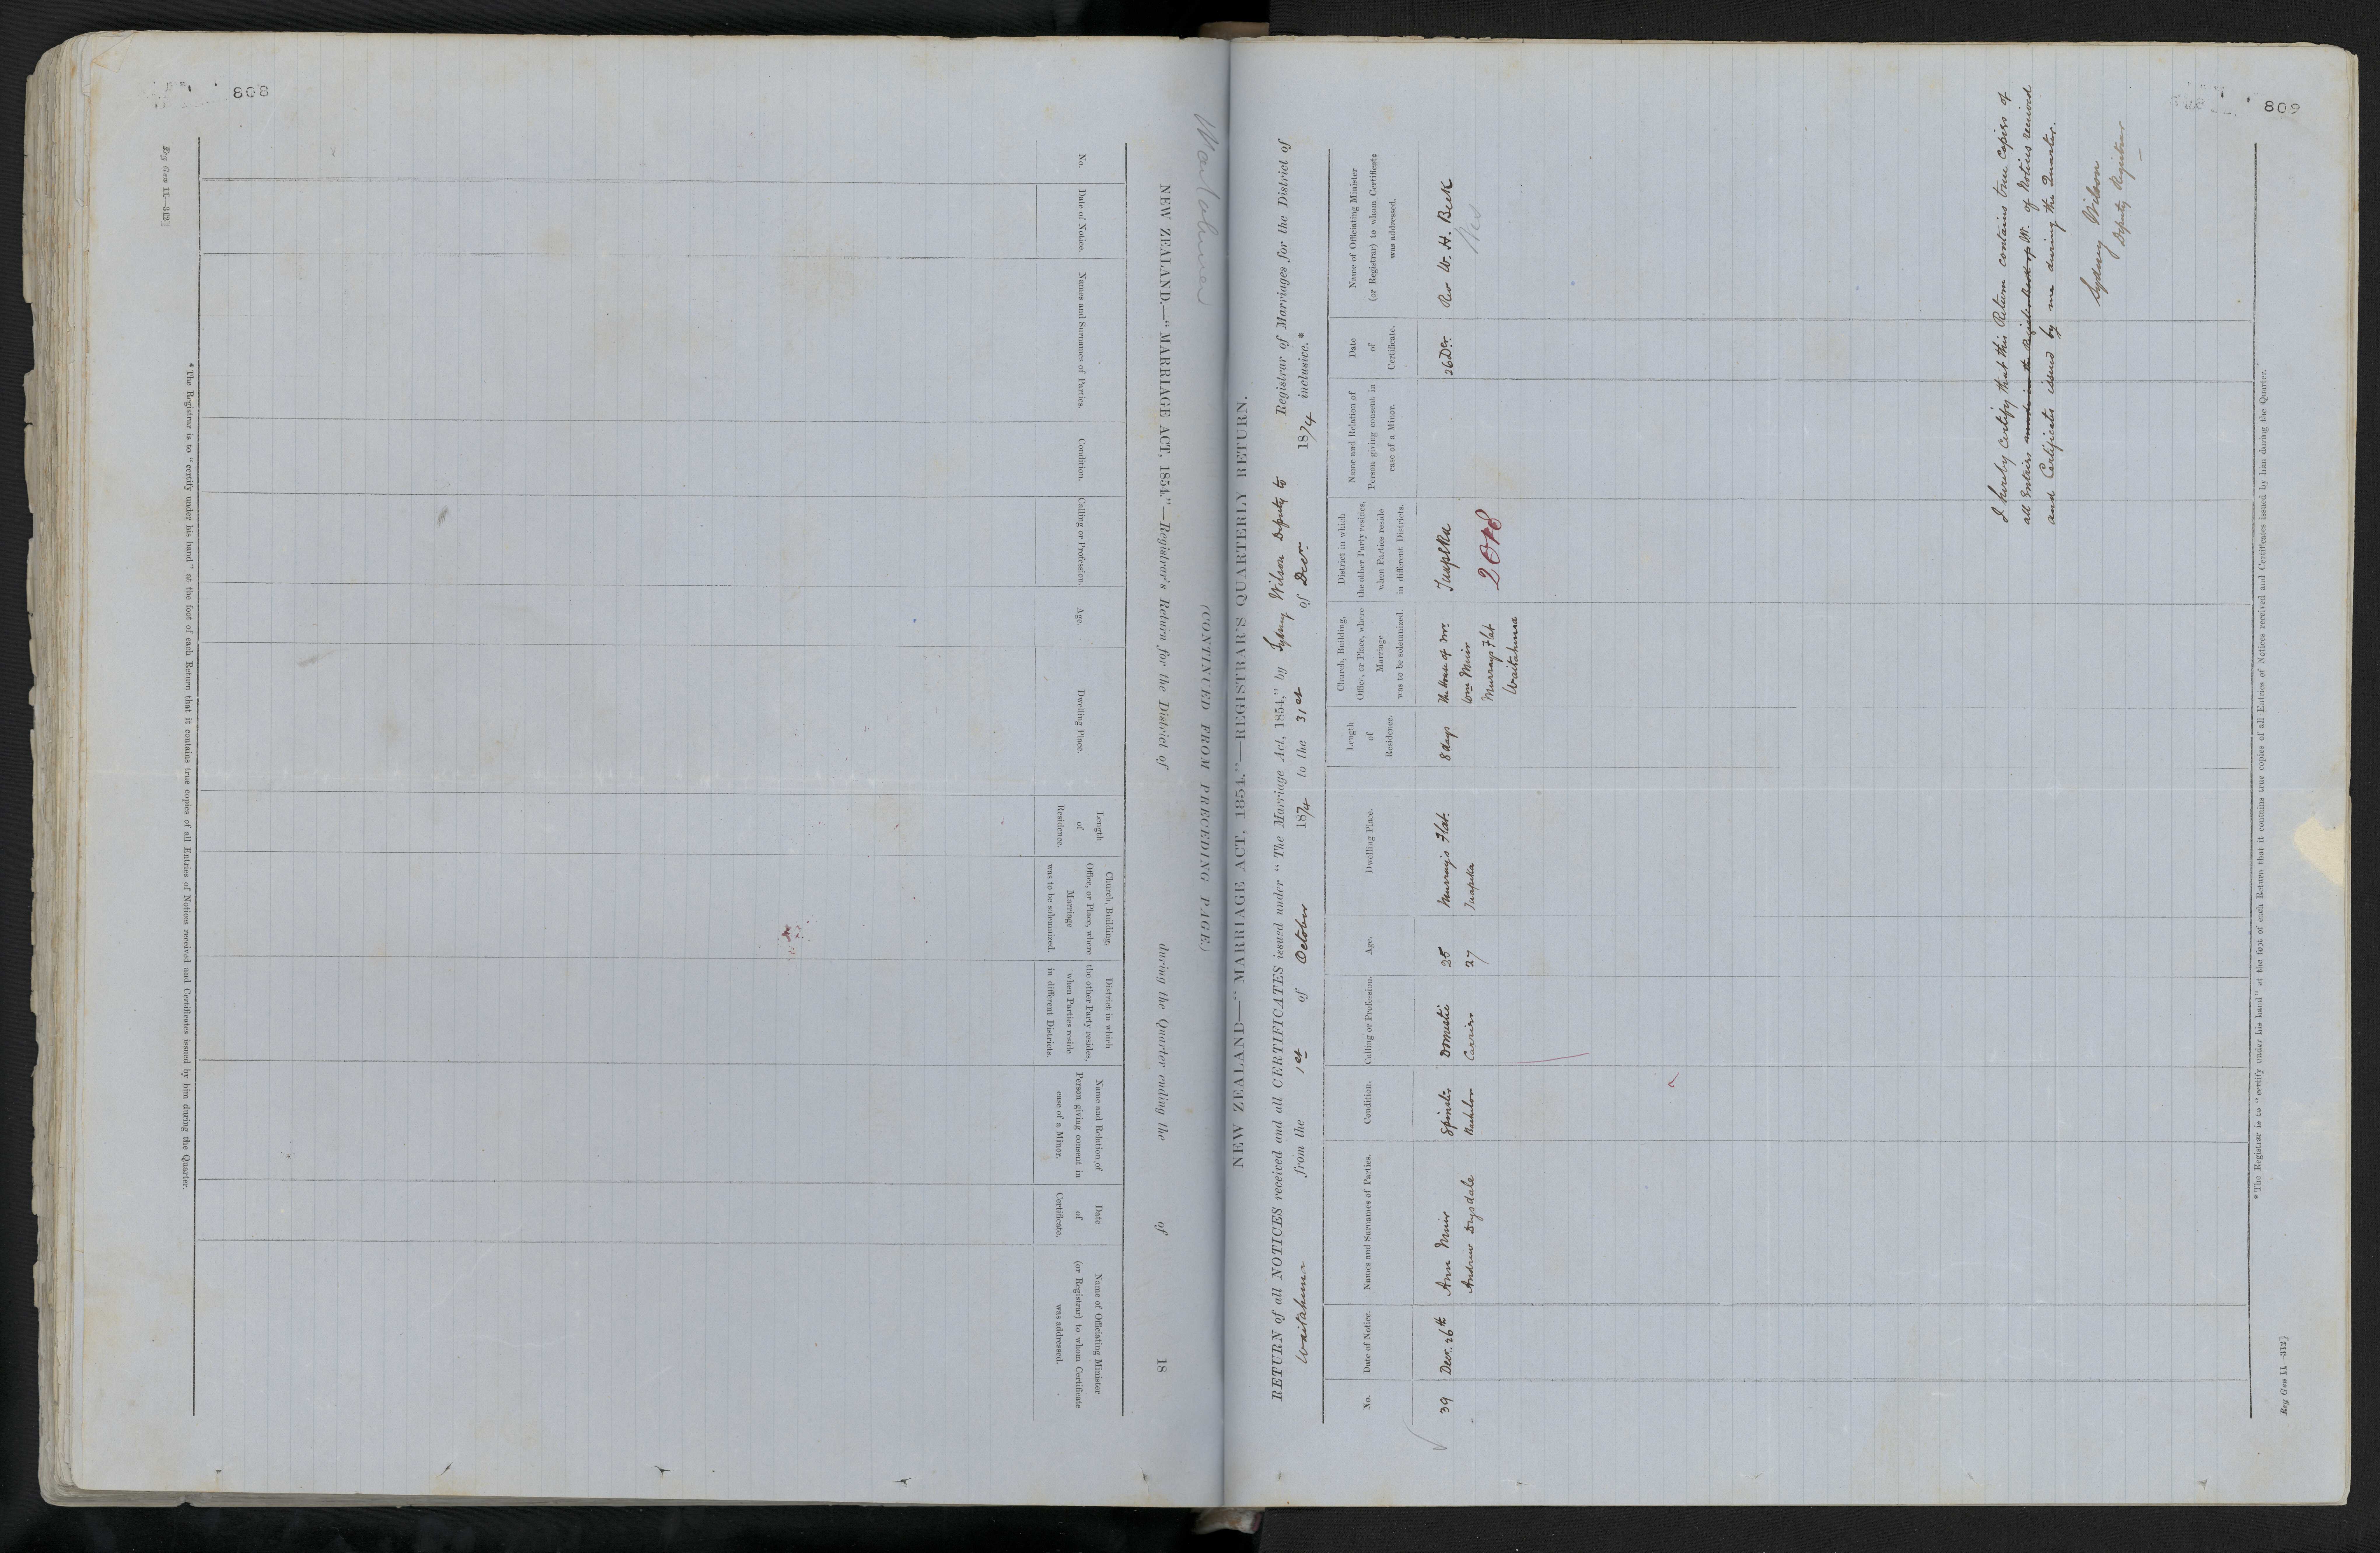 808
Reg Gen 11—312]
Waitahuna
NEW ZEALAND.—"MARRIAGE ACT, 1854."—Registrar's Return for the District of during the Quarter ending the of 18
(CONTINUED FROM PRECEDING PAGE.)
No.
Date of Notice.
Names and Surnames of Parties.
Condition.
Calling or Profession.
Age.
Dwelling Place.
Length
of
Residence.
Church, Building,
Office, or Place, where
Marriage
was to be solemnized.
District in which
the other Party resides,
when Parties reside
in different Districts.
Name and Relation of
Person giving consent in
case of a Minor.
Date
of
Certificate.
Name of Officiating Minister
(or Registrar) to whom Certificate
was addressed.
*The Registrar is to "certify under his hand" at the foot of each Return that it contains true copies of all Entries of Notices received and Certificates issued by him during the Quarter.
809
NEW ZEALAND—"MARRIAGE ACT, 1854."—REGISTRAR'S QUARTERLY RETURN.
RETURN of all NOTICES received and all CERTIFICATES issued under "The Marriage Act, 1854," by Sydney Wilson Deputy to Registrar of Marriages for the District of
Waitahuna from the 1st of October 1874 to the 31st of Decr. 1874 inclusive.*
No.
Date of Notice.
Names and Surnames of Parties.
Condition.
Calling or Profession.
Age.
Dwelling Place.
Length
of
Residence.
Church, Building,
Office, or Place, where
Marriage
was to be solemnized.
District in which
the other Party resides,
when Parties reside
in different Districts.
Name and Relation of
Person giving consent in
case of a Minor.
Date
of
Certificate.
Name of Officiating Minister
(or Registrar) to whom Certificate
was addressed.
39 Decr. 26th Ann Muir Spinster Domestic 25 Murrays Flat. 8 days the house of Mr. Tuapeka 26 Decr. Rev W. H. Beck
Andrew Drysdale Bachelor Carrier 27 Tuapeka Wm Muir
Murrays Flat
Waitahuna
I hereby certify that this Return contains true Copies of
all Entries made in the Register Book of M. of Notices received
and Certificates issued by me during the Quarter.
Sydney Wilson
Deputy Registrar
*The Registrar is to "certify under his hand" at the foot of each Return that it contains true copies of all Entries of Notices received and Certificates issued by him during the Quarter.
Reg Gen 11—312]